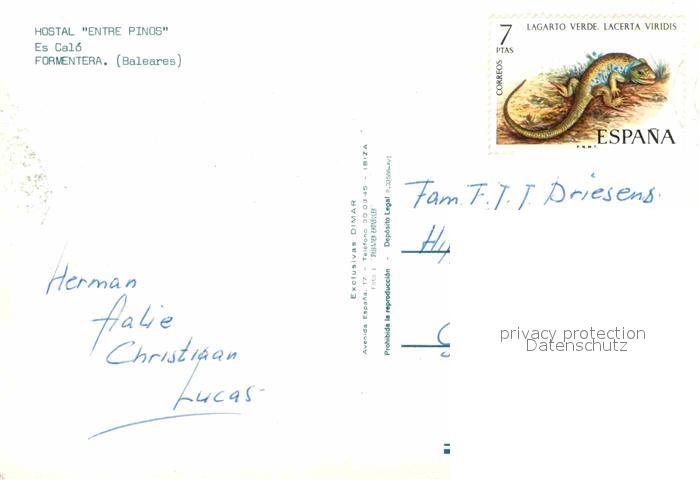 HOSTAL "ENTRE PINOS"
Es Caló
FORMENTERA. (Baleares)
7
PTAS
CORREOS
LAGARTO VERDE. LACERTA VIRIDIS
ESPAÑA
F.N.M.T.
Exclusivas DIMAR
Avenida España, 17 - Teléfono 30 03 45 - IBIZA
Prohibida la reproducción - Depósito Legal
Fam. F. T. T. Driesens
privacy protection
Datenschutz
Herman
Christiaan
Lucas